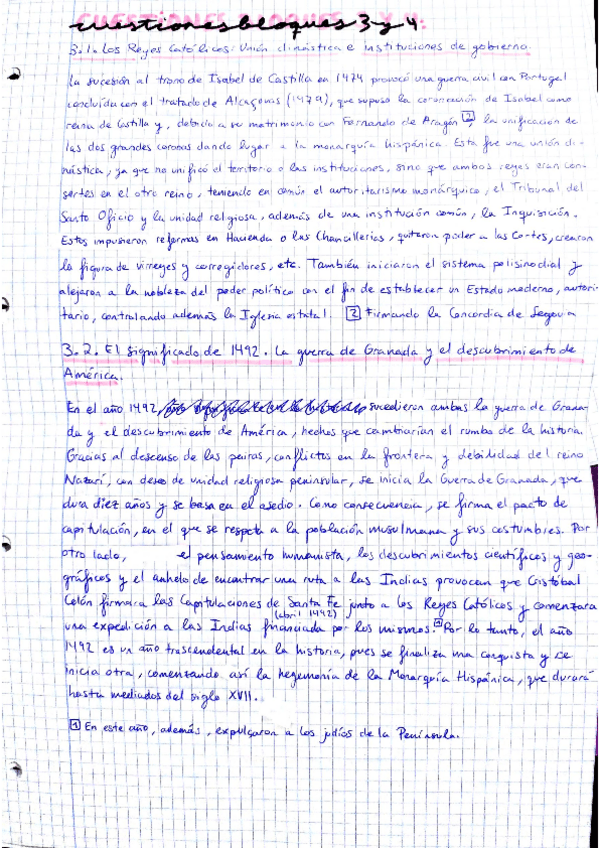 cuestiones bloques 3 y 4:
3.1. Los Reyes Católicos: Unión dinástica e instituciones de gobierno.
La sucesión al trono de Isabel de Castilla en 1474 provocó una guerra civil con Portugal
concluida con el tratado de Alcaçovas (1479), que supuso la coronación de Isabel como
reina de Castilla y, debido a su matrimonio con Fernando de Aragón [2] la unificación de
las dos grandes coronas dando lugar a la monarquía hispánica. Esta fue una unión di-
nástica, ya que no unificó el territorio o las instituciones, sino que ambos reyes eran con-
sortes en el otro reino, teniendo en común el autoritarismo monárquico, el Tribunal del
Santo Oficio y la unidad religiosa, además de una institución común, la Inquisición.
Estos impusieron reformas en Hacienda o las Chancillerías, quitaron poder a las Cortes, crearon
la figura de virreyes y corregidores, etc. También iniciaron el sistema polisinodial y
alejaron a la nobleza del poder político con el fin de establecer un Estado moderno, autori-
tario, controlando además la Iglesia estatal. [2] Firmando la Concordia de Segovia
3.2. El significado de 1492. La guerra de Granada y el descubrimiento de
América.
En el año 1492 sucedieron ambas la guerra de Grana-
da y el descubrimiento de América, hechos que cambiarían el rumbo de la historia.
Gracias al descenso de las parias, conflictos en la frontera y debilidad del reino
Nazarí, con deseo de unidad religiosa peninsular, se inicia la Guerra de Granada, que
dura diez años y se basa en el asedio. Como consecuencia, se firma el pacto de
capitulación, en el que se respeta a la población musulmana y sus costumbres. Por
otro lado, el pensamiento humanista, los descubrimientos científicos y geo-
gráficos y el anhelo de encontrar una ruta a las Indias provocan que Cristóbal
Colón firmara las Capitulaciones de Santa Fe junto a los Reyes Católicos y comenzara
(abril 1492)
una expedición a las Indias financiada por los mismos. [1] Por lo tanto, el año
1492 es un año trascendental en la historia, pues se finaliza una conquista y se
inicia otra, comenzando así la hegemonía de la Monarquía Hispánica, que durará
hasta mediados del siglo XVII.
[1] En este año, además, expulsaron a los judíos de la Península.